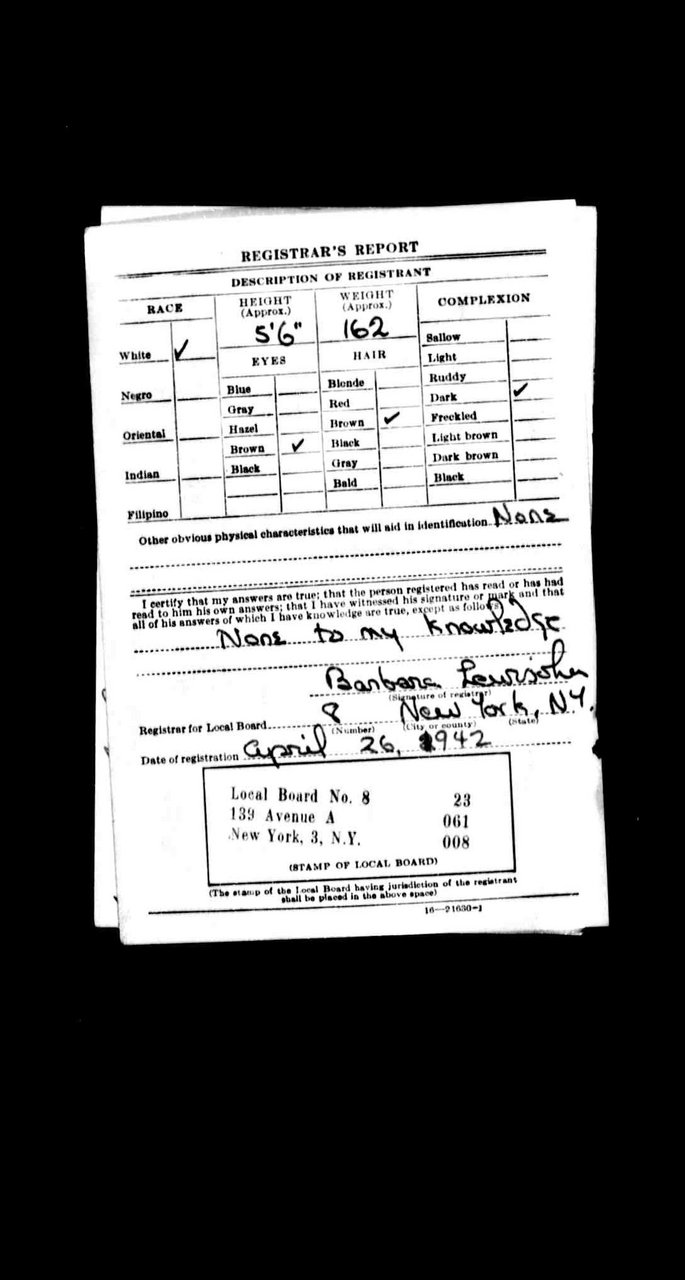 REGISTRAR'S REPORT
DESCRIPTION OF REGISTRANT
RACE
HEIGHT (Approx.)
WEIGHT (Approx.)
COMPLEXION
5'6"
162
Sallow
White ✓
EYES
HAIR
Light
Ruddy
Negro
Blue
Blonde
Dark ✓
Gray
Red
Freckled
Oriental
Hazel
Brown ✓
Light brown
Brown ✓
Black
Dark brown
Indian
Black
Gray
Black
Bald
Filipino
Other obvious physical characteristics that will aid in identification None
I certify that my answers are true; that the person registered has read or has had
read to him his own answers; that I have witnessed his signature or mark and that
all of his answers of which I have knowledge are true, except as follows:
None to my knowledge
Barbara Lewisohn
(Signature of registrar)
Registrar for Local Board 8 New York, N.Y.
(Number) (City or county) (State)
Date of registration April 26, 1942
Local Board No. 8 23
139 Avenue A 061
New York, 3, N.Y. 008
(STAMP OF LOCAL BOARD)
(The stamp of the Local Board having jurisdiction of the registrant
shall be placed in the above space)
16—21630-1